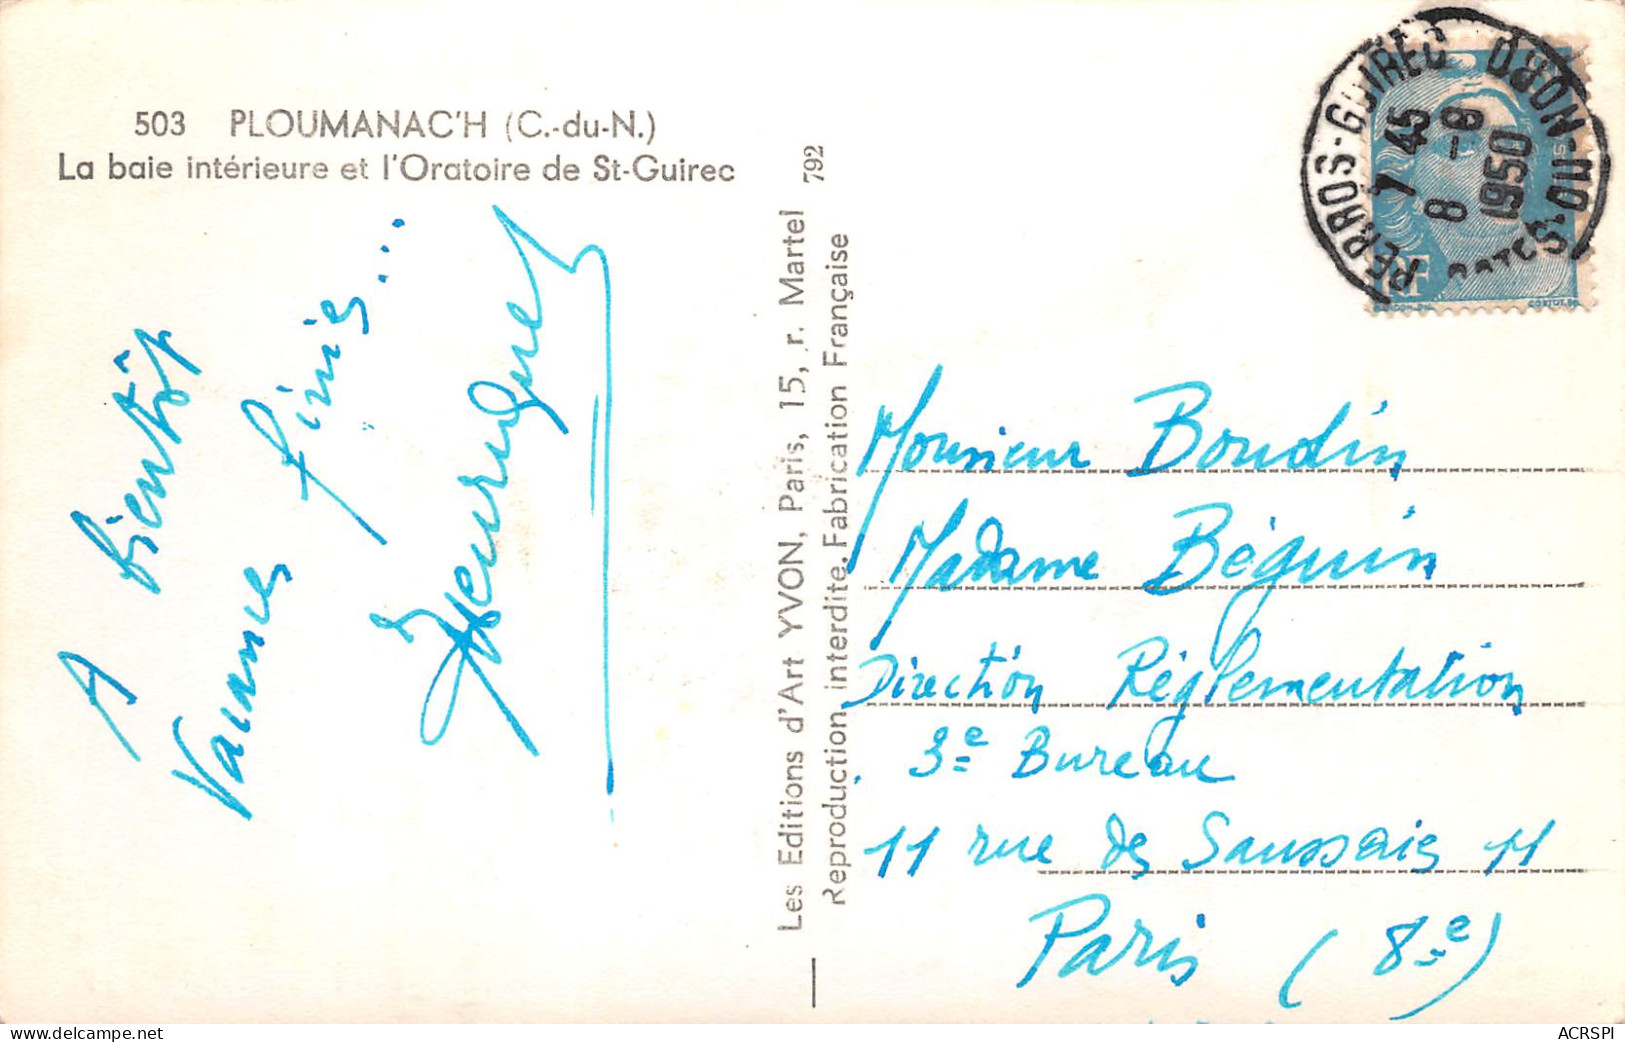 503 PLOUMANAC'H (C.-du-N.)
La baie intérieure et l'Oratoire de St-Guirec
A bientôt
Vacances finies...
792
Les Editions d'Art YVON, Paris, 15, r. Martel
Reproduction interdite. Fabrication Française
PERROS-GUIREC
7 45
8 -8
1950
RF
Monsieur Boudin
Madame Béguin
Direction Réglementation
3e Bureau
11 rue des Saussaies 11
Paris (8e)
ACRSPI